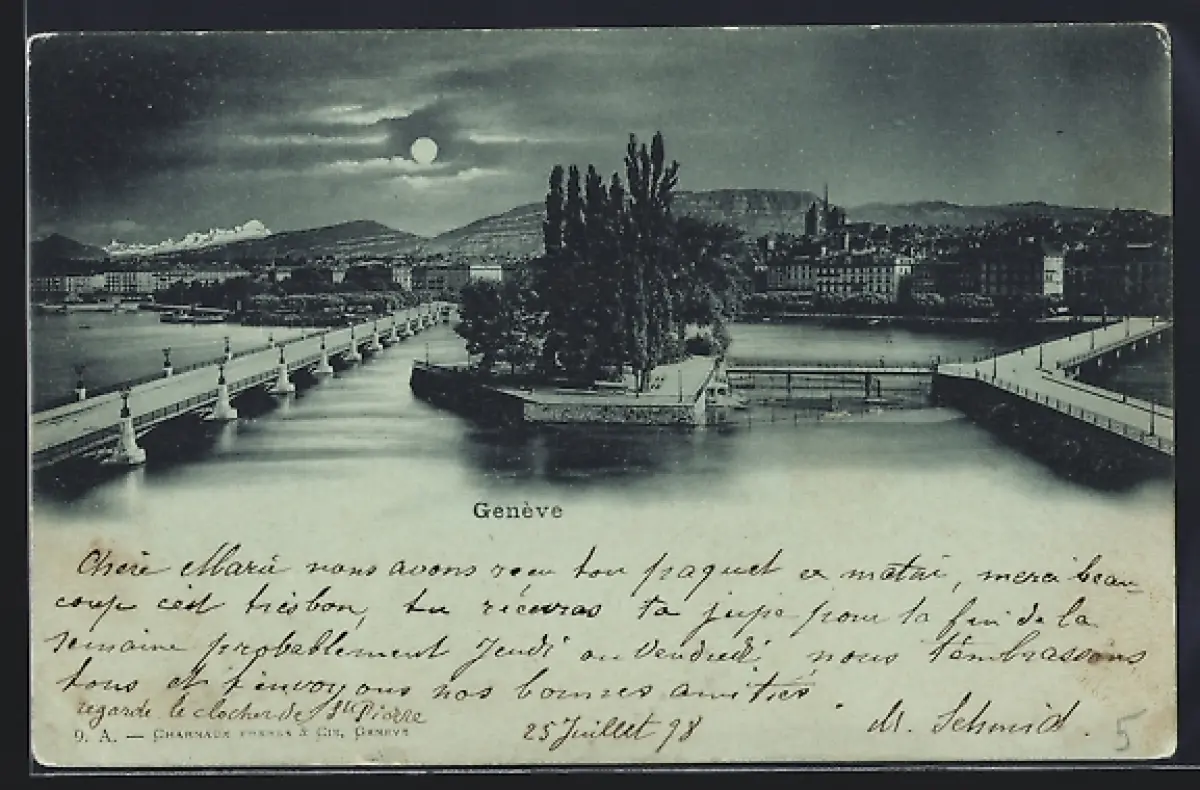 Genève
Chère Marie nous avons reçu ton paquet ce matin, merci beau-
coup c'est très bon, tu recevras ta jupe pour la fin de la
semaine probablement Jeudi ou Vendredi nous t'embrassons
tous et t'envoyons nos bonnes amitiés
regarde le clocher de St Pierre
25 Juillet 98
M. Schmid.
9. A. — CHARNAUX FRÈRES & CIE, GENÈVE
5